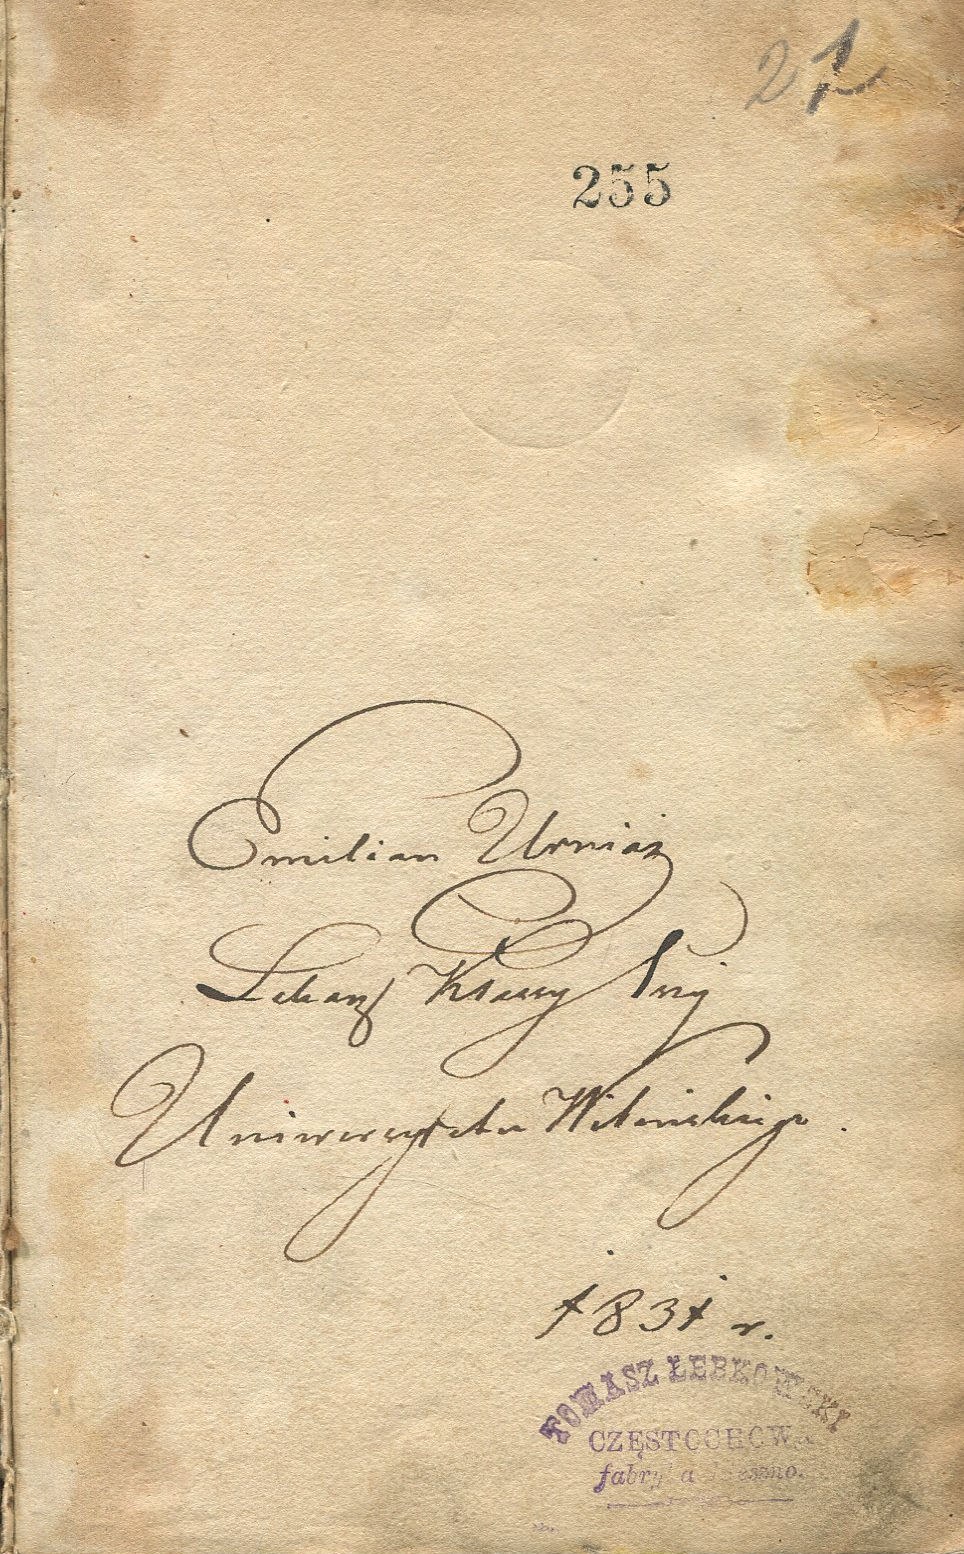 21
255
Emilian Urniaż
Lekarz Klassy 1szej
Uniwersytetu Wileńskiego.
1831 r.
TOMASZ ŁEBKOWSKI
CZĘSTOCHOWA
fabryka